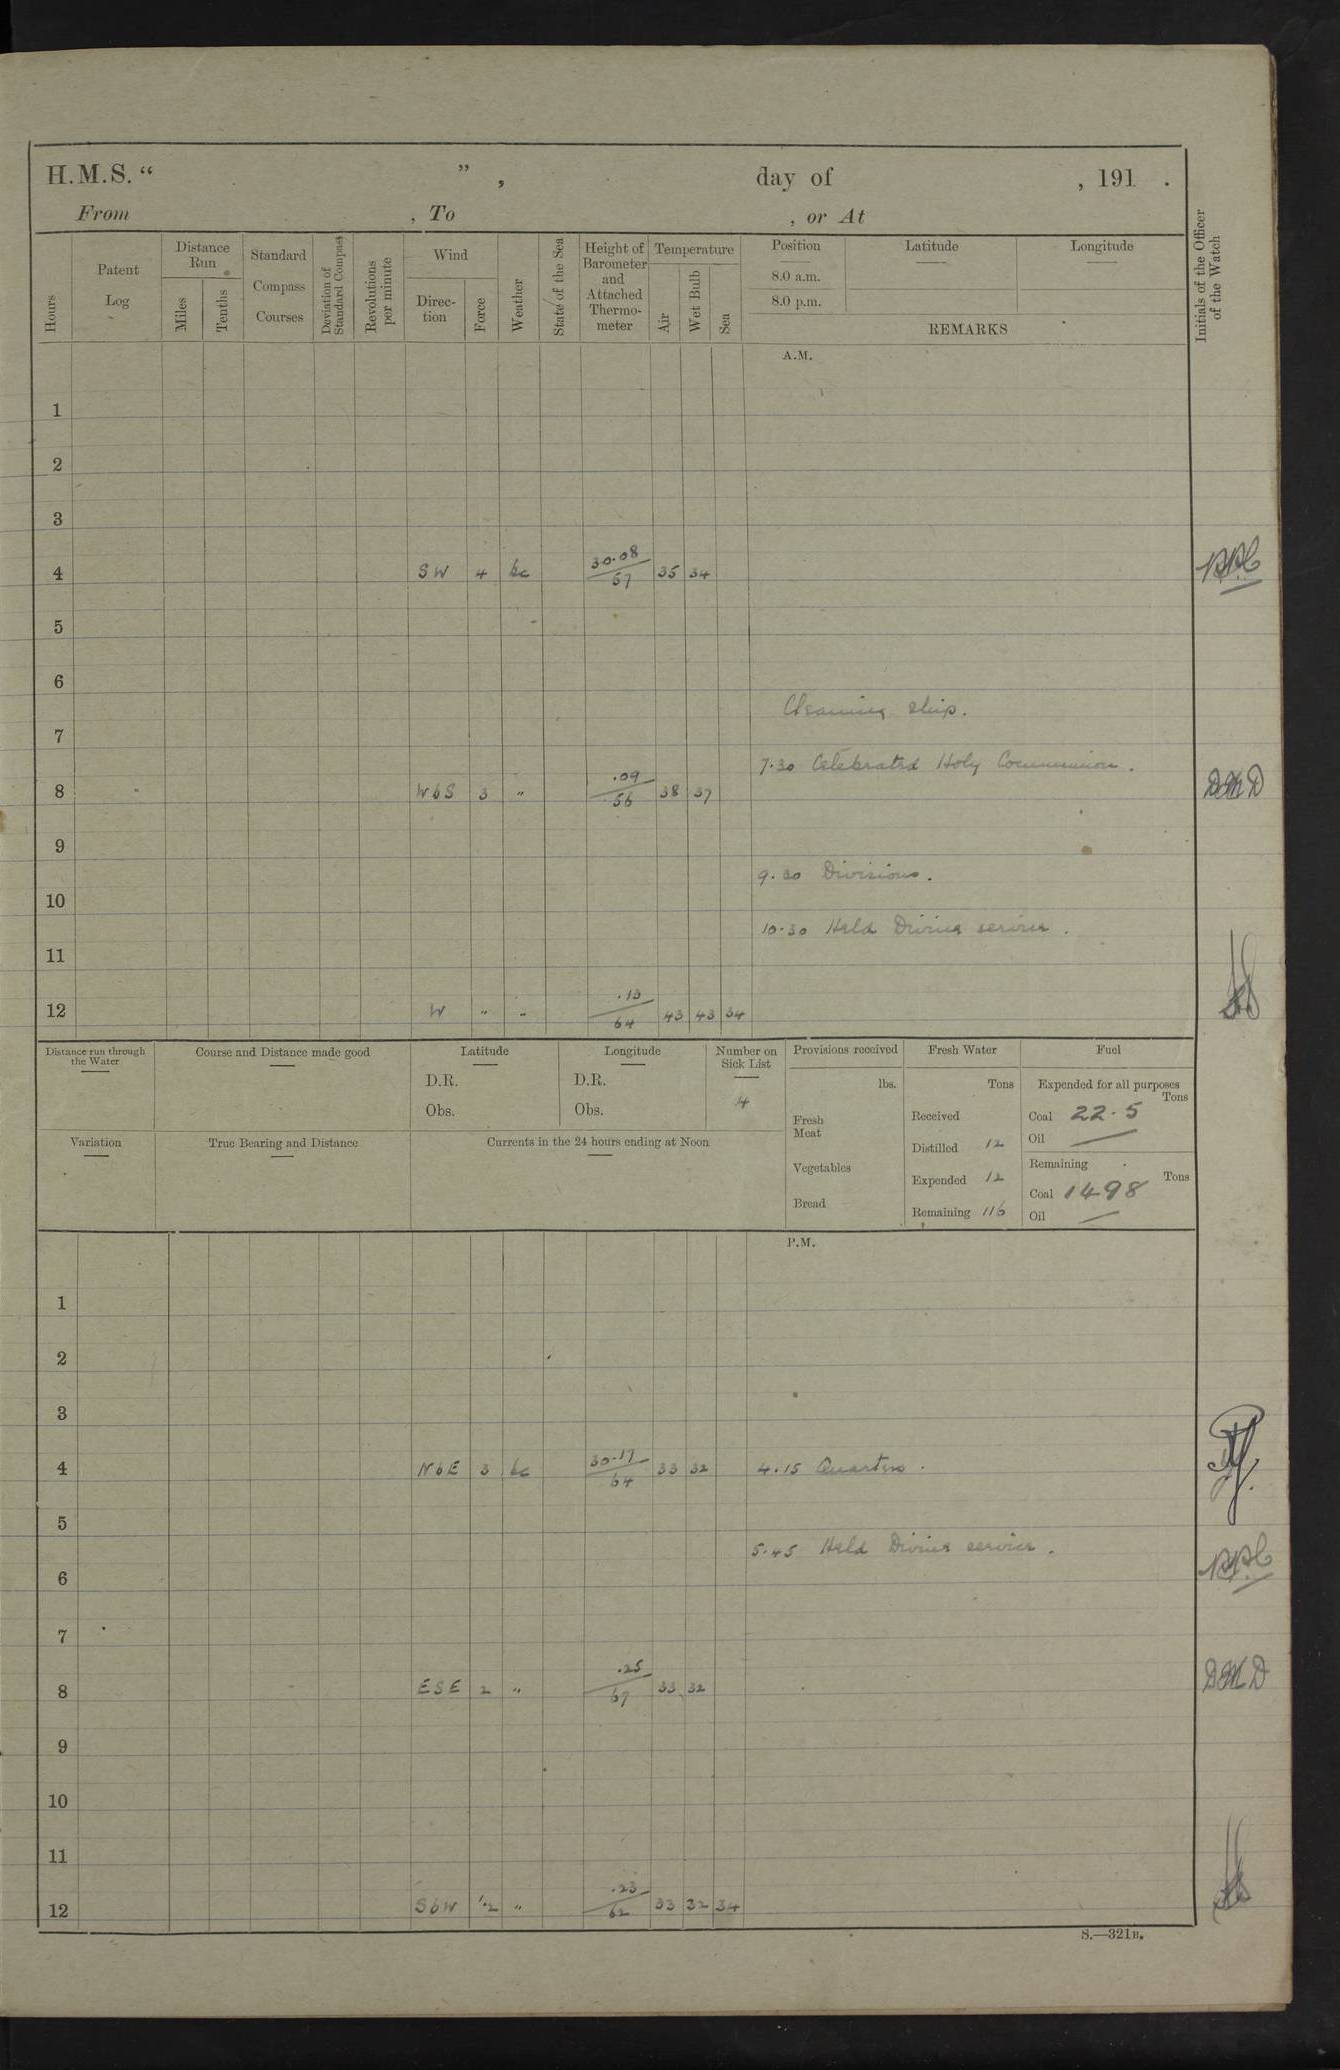 H.M.S. “ ” , day of , 191 .
From , To , or At
Hours
Patent Log
Distance Run
Miles
Tenths
Standard Compass Courses
Deviation of Standard Compass
Revolutions per minute
Wind
Direc-tion
Force
Weather
State of the Sea
Height of Barometer and Attached Thermo-meter
Temperature
Air
Wet Bulb
Sea
Position Latitude Longitude
8.0 a.m.
8.0 p.m.
REMARKS
Initials of the Officer of the Watch
A.M.
1
2
3
4 SW 4 bc 30.08 / 57 35 34
5
6
Cleaning ship.
7
7.30 Celebrated Holy Communion.
8 WbS 3 " .09 / 56 38 37 DKD
9
9.30 Divisions.
10
10.30 Held Divine service.
11
12 W " " .13 / 64 43 43 34
Distance run through the Water
Course and Distance made good
Latitude
D.R.
Obs.
Longitude
D.R.
Obs.
Number on Sick List
4
Variation
True Bearing and Distance
Currents in the 24 hours ending at Noon
Provisions received
lbs.
Fresh Meat
Vegetables
Bread
Fresh Water
Tons
Received
Distilled 12
Expended 12
Remaining 116
Fuel
Expended for all purposes
Tons
Coal 22.5
Oil —
Remaining
Tons
Coal 1498
Oil —
P.M.
1
2
3
4 NbE 3 bc 30.17 / 64 33 32 4.15 Quarters.
5
5.45 Held Divine service.
6
7
8 ESE 2 " .25 / 67 33 32 DKD
9
10
11
12 SbW 1.2 " .23 / 62 33 32 34
S.—321B.